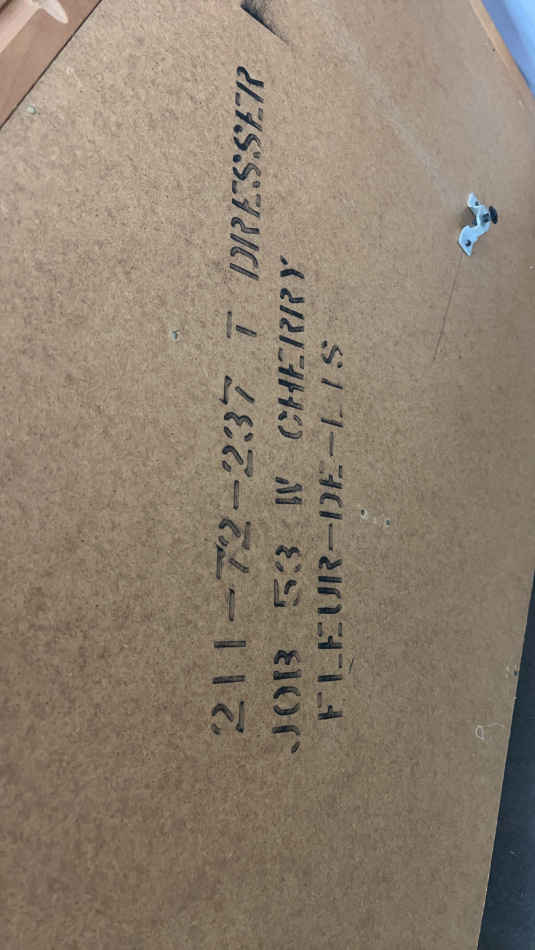 211-72-237 T DRESSER
JOB 53 W CHERRY
FLEUR-DE-LIS